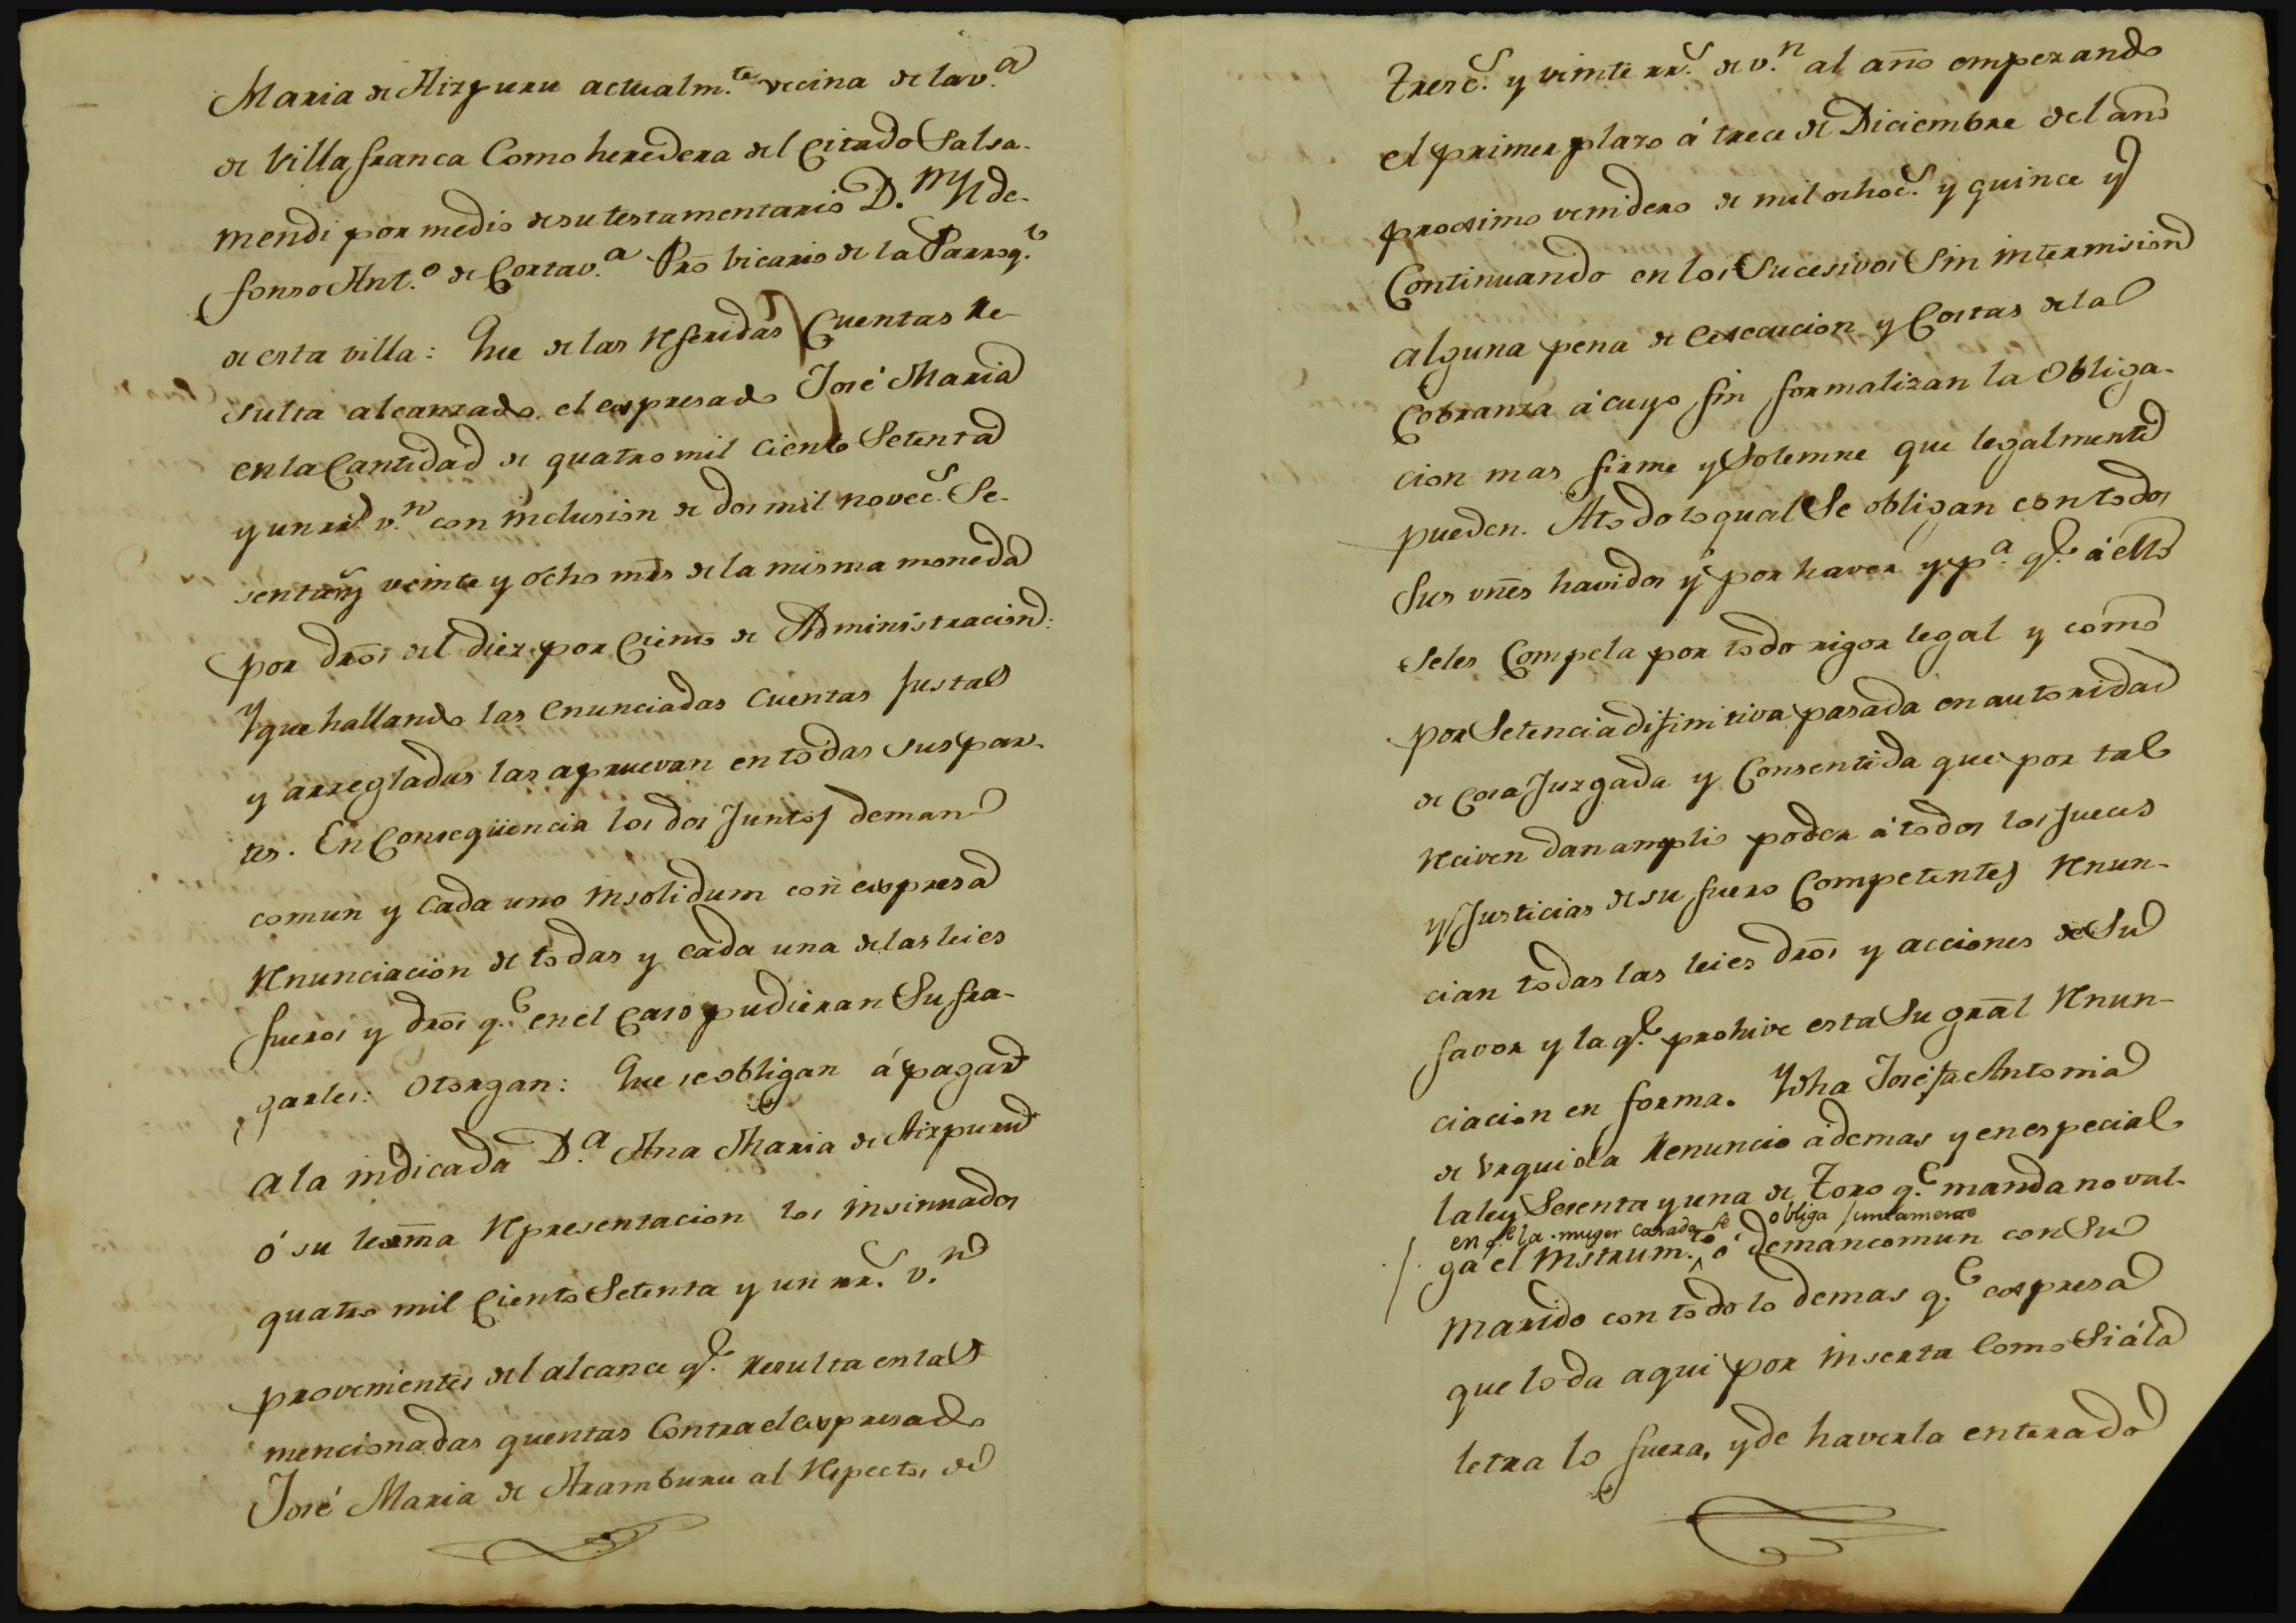 Maria de Aizpuru actualm.te vecina de la v.a
de Villafranca Como heredera del Citado Salsa-
mendi por medio de su testamentario D.n Ylde-
fonso Ant.o de Cortav.a Pro Vicario de la Parroq.l
de esta villa: Que de las referidas Cuentas Re-
sulta alcanzado el expresado José Maria
en la Cantidad de quatro mil ciento Setenta
y un rr.s v.n con inclusion de dos mil novec.s Se-
senta y veinte y ocho mrs de la misma moneda
por dros del diez por Ciento de Administracion:
Y que hallando las enunciadas cuentas Justas
y arregladas las aprueuan en todas sus par-
tes. En Conseqüencia los dos Juntos deman
comun y cada uno insolidum con expresa
renunciacion de todas y cada una de las leies
fueros y dros q.e en el Caso pudieran Sufra-
garles: Otorgan: Que se obligan á pagar
a la indicada D.a Ana Maria de Aizpuru
ó su lexma representacion los insinuados
quatro mil Ciento Setenta y un rr.s v.n
provenientes del alcance q.e Resulta en las
mencionadas quentas Contra el expresado
José Maria de Aramburu al respecto, de
Tresc.s y veinte rr.s de v.n al año empezando
el primer plazo á trece de Diciembre del año
procsimo venidero de mil ochoc.s y quince y
Continuando en los Sucesivos Sin intermision
alguna pena de execucion y Costas de la
Cobranza á cuyo fin formalizan la Obliga-
cion mas firme y Solemne que legalmente
pueden. A todo lo qual Se obligan con todos
Sus vnes havidos y por haver y p.a q.e á ello
se les Compela por todo rigor legal y como
por Setencia difinitiva pasada en autoridad
de Cosa Juzgada y Consentida que por tal
reciven dan amplio poder á todos los Jueces
y Justicias de su fuero Competentes renun-
cian todas las leies dros y acciones de Su
favor y la q.e prohive esta Su gral renun-
ciacion en forma. Y dha Josefa Antonia
de Urquiola Renuncio ademas y en especial
la ley Sesenta y una de Toro q.e manda no val-
en q.e la muger casada se obliga juntamente
ga el instrum.to ó demancomun con Su
marido con todo lo demas q.e expresa
que lo da aqui por inserta Como Si á la
letra lo fuera, y de haverla enterado